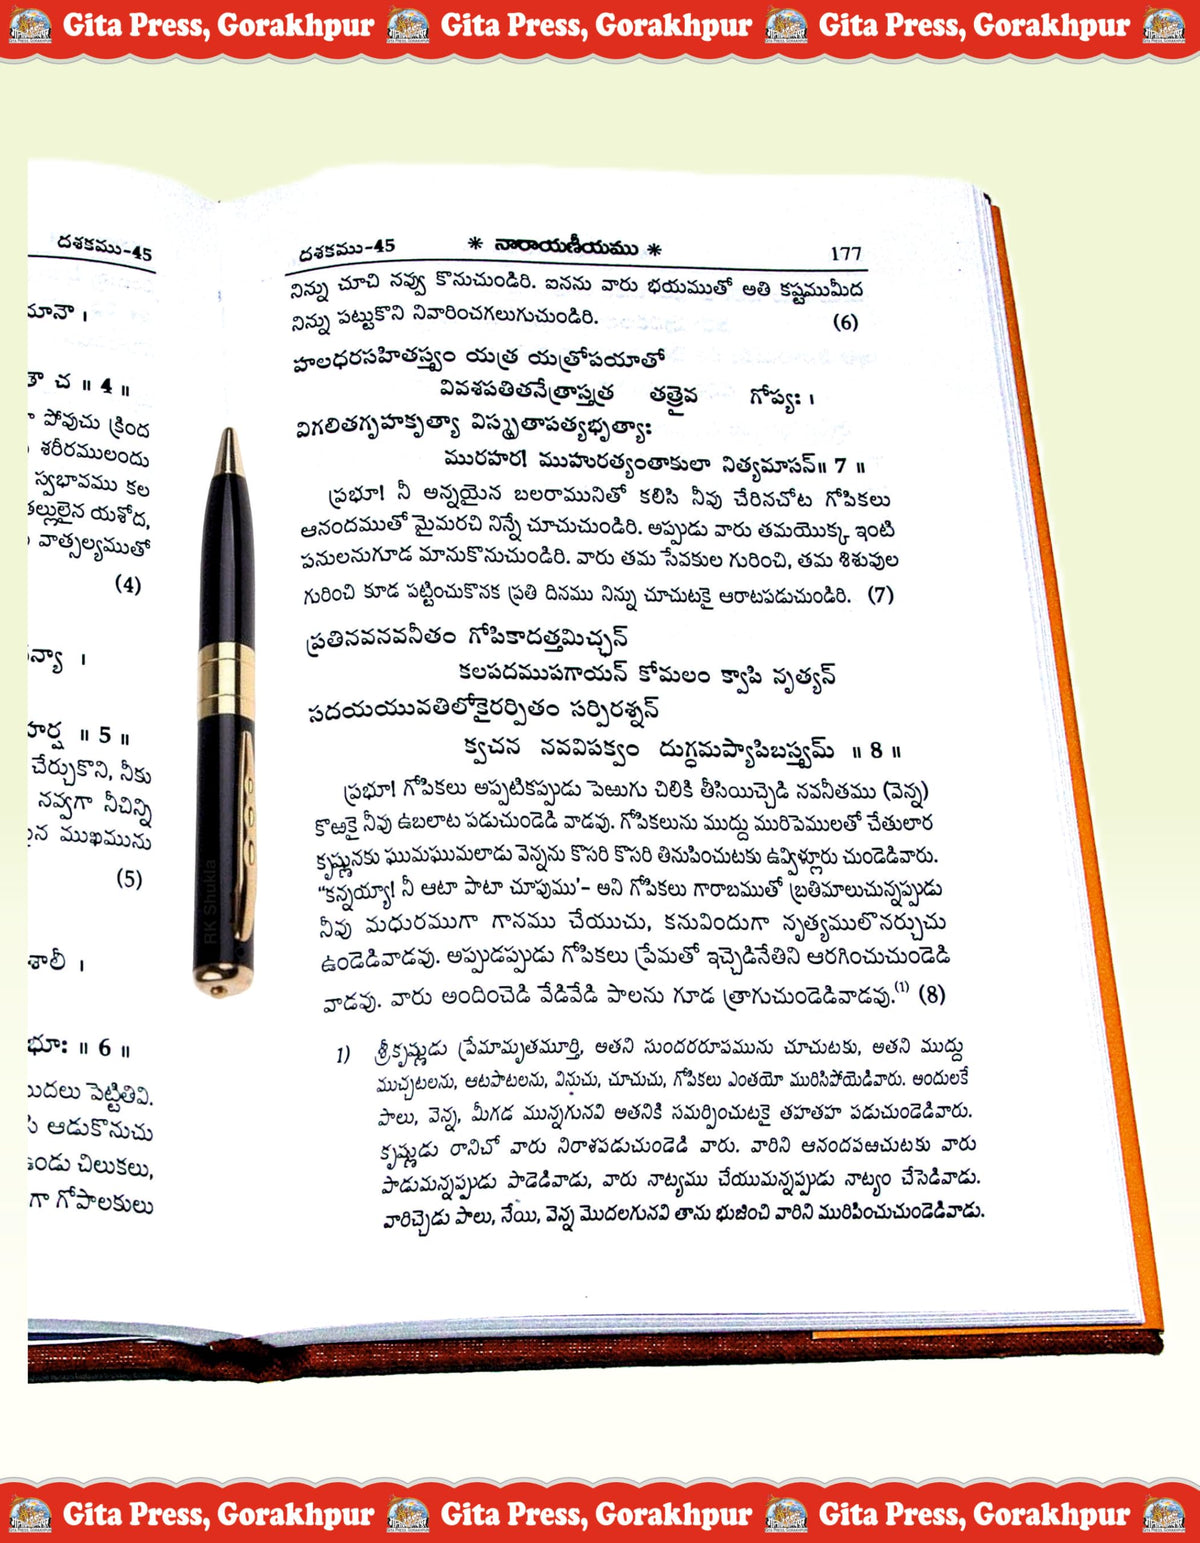 Gita Press, Gorakhpur Gita Press, Gorakhpur Gita Press, Gorakhpur
దశకము-45
మానౌ ।
చ ॥ 4 ॥
పోవుచు క్రింద
శరీరములందు
స్వభావము కల
తల్లులైన యశోద,
వాత్సల్యముతో
(4)
న్యా ।
హర్ష ॥ 5 ॥
చేర్చుకొని, నీకు
నవ్వగా నీచిన్ని
ముఖమును
(5)
శాలీ ।
భూః ॥ 6 ॥
మొదలు పెట్టితివి.
ఆడుకొనుచు
చిలుకలు,
గా గోపాలకులు
RK Shukla
దశకము-45 * నారాయణీయము * 177
నిన్ను చూచి నవ్వు కొనుచుండిరి. ఐనను వారు భయముతో అతి కష్టముమీద
నిన్ను పట్టుకొని నివారించగలుగుచుండిరి. (6)
హలధరసహితస్త్వం యత్ర యత్రోపయాతో
వివశపతితనేత్రాస్తత్ర తత్రైవ గోప్యః ।
విగలితగృహకృత్యా విస్మృతాపత్యభృత్యాః
మురహర! ముహురత్యంతాకులా నిత్యమాసన్॥ 7 ॥
ప్రభూ! నీ అన్నయైన బలరామునితో కలిసి నీవు చేరినచోట గోపికలు
ఆనందముతో మైమరచి నిన్నే చూచుచుండిరి. అప్పుడు వారు తమయొక్క ఇంటి
పనులనుగూడ మానుకొనుచుండిరి. వారు తమ సేవకుల గురించి, తమ శిశువుల
గురించి కూడ పట్టించుకొనక ప్రతి దినము నిన్ను చూచుటకై ఆరాటపడుచుండిరి. (7)
ప్రతినవనవనీతం గోపికాదత్తమిచ్ఛన్
కలపదముపగాయన్ కోమలం క్వాపి నృత్యన్
సదయయువతిలోకైరర్పితం సర్పిరశ్నన్
క్వచన నవవిపక్వం దుగ్ధమప్యాపిబస్త్వమ్ ॥ 8 ॥
ప్రభూ! గోపికలు అప్పటికప్పుడు పెఱుగు చిలికి తీసియిచ్చెడి నవనీతము (వెన్న)
కొఱకై నీవు ఉబలాట పడుచుండెడి వాడవు. గోపికలును ముద్దు మురిపెములతో చేతులార
కృష్ణునకు ఘుమఘుమలాడు వెన్నను కొసరి కొసరి తినుపించుటకు ఉవ్విళ్లూరు చుండెడివారు.
“కన్నయ్యా! నీ ఆటా పాటా చూపుము’- అని గోపికలు గారాబముతో బ్రతిమాలుచున్నప్పుడు
నీవు మధురముగా గానము చేయుచు, కనువిందుగా నృత్యములొనర్చుచు
ఉండెడివాడవు. అప్పుడప్పుడు గోపికలు ప్రేమతో ఇచ్చెడినేతిని ఆరగించుచుండెడి
వాడవు. వారు అందించెడి వేడివేడి పాలను గూడ త్రాగుచుండెడివాడవు.(1) (8)
1) శ్రీకృష్ణుడు ప్రేమామృతమూర్తి, అతని సుందరరూపమును చూచుటకు, అతని ముద్దు
ముచ్చటలను, ఆటపాటలను, వినుచు, చూచుచు, గోపికలు ఎంతయో మురిసిపోయెడివారు. అందులకే
పాలు, వెన్న, మీగడ మున్నగునవి అతనికి సమర్పించుటకై తహతహ పడుచుండెడివారు.
కృష్ణుడు రానిచో వారు నిరాశపడుచుండెడి వారు. వారిని ఆనందపఱచుటకు వారు
పాడుమన్నప్పుడు పాడెడివాడు, వారు నాట్యము చేయుమన్నప్పుడు నాట్యం చేసెడివాడు.
వారిచ్చెడు పాలు, నేయి, వెన్న మొదలగునవి తాను భుజించి వారిని మురిపించుచుండెడివాడు.
Gita Press, Gorakhpur Gita Press, Gorakhpur Gita Press, Gorakhpur